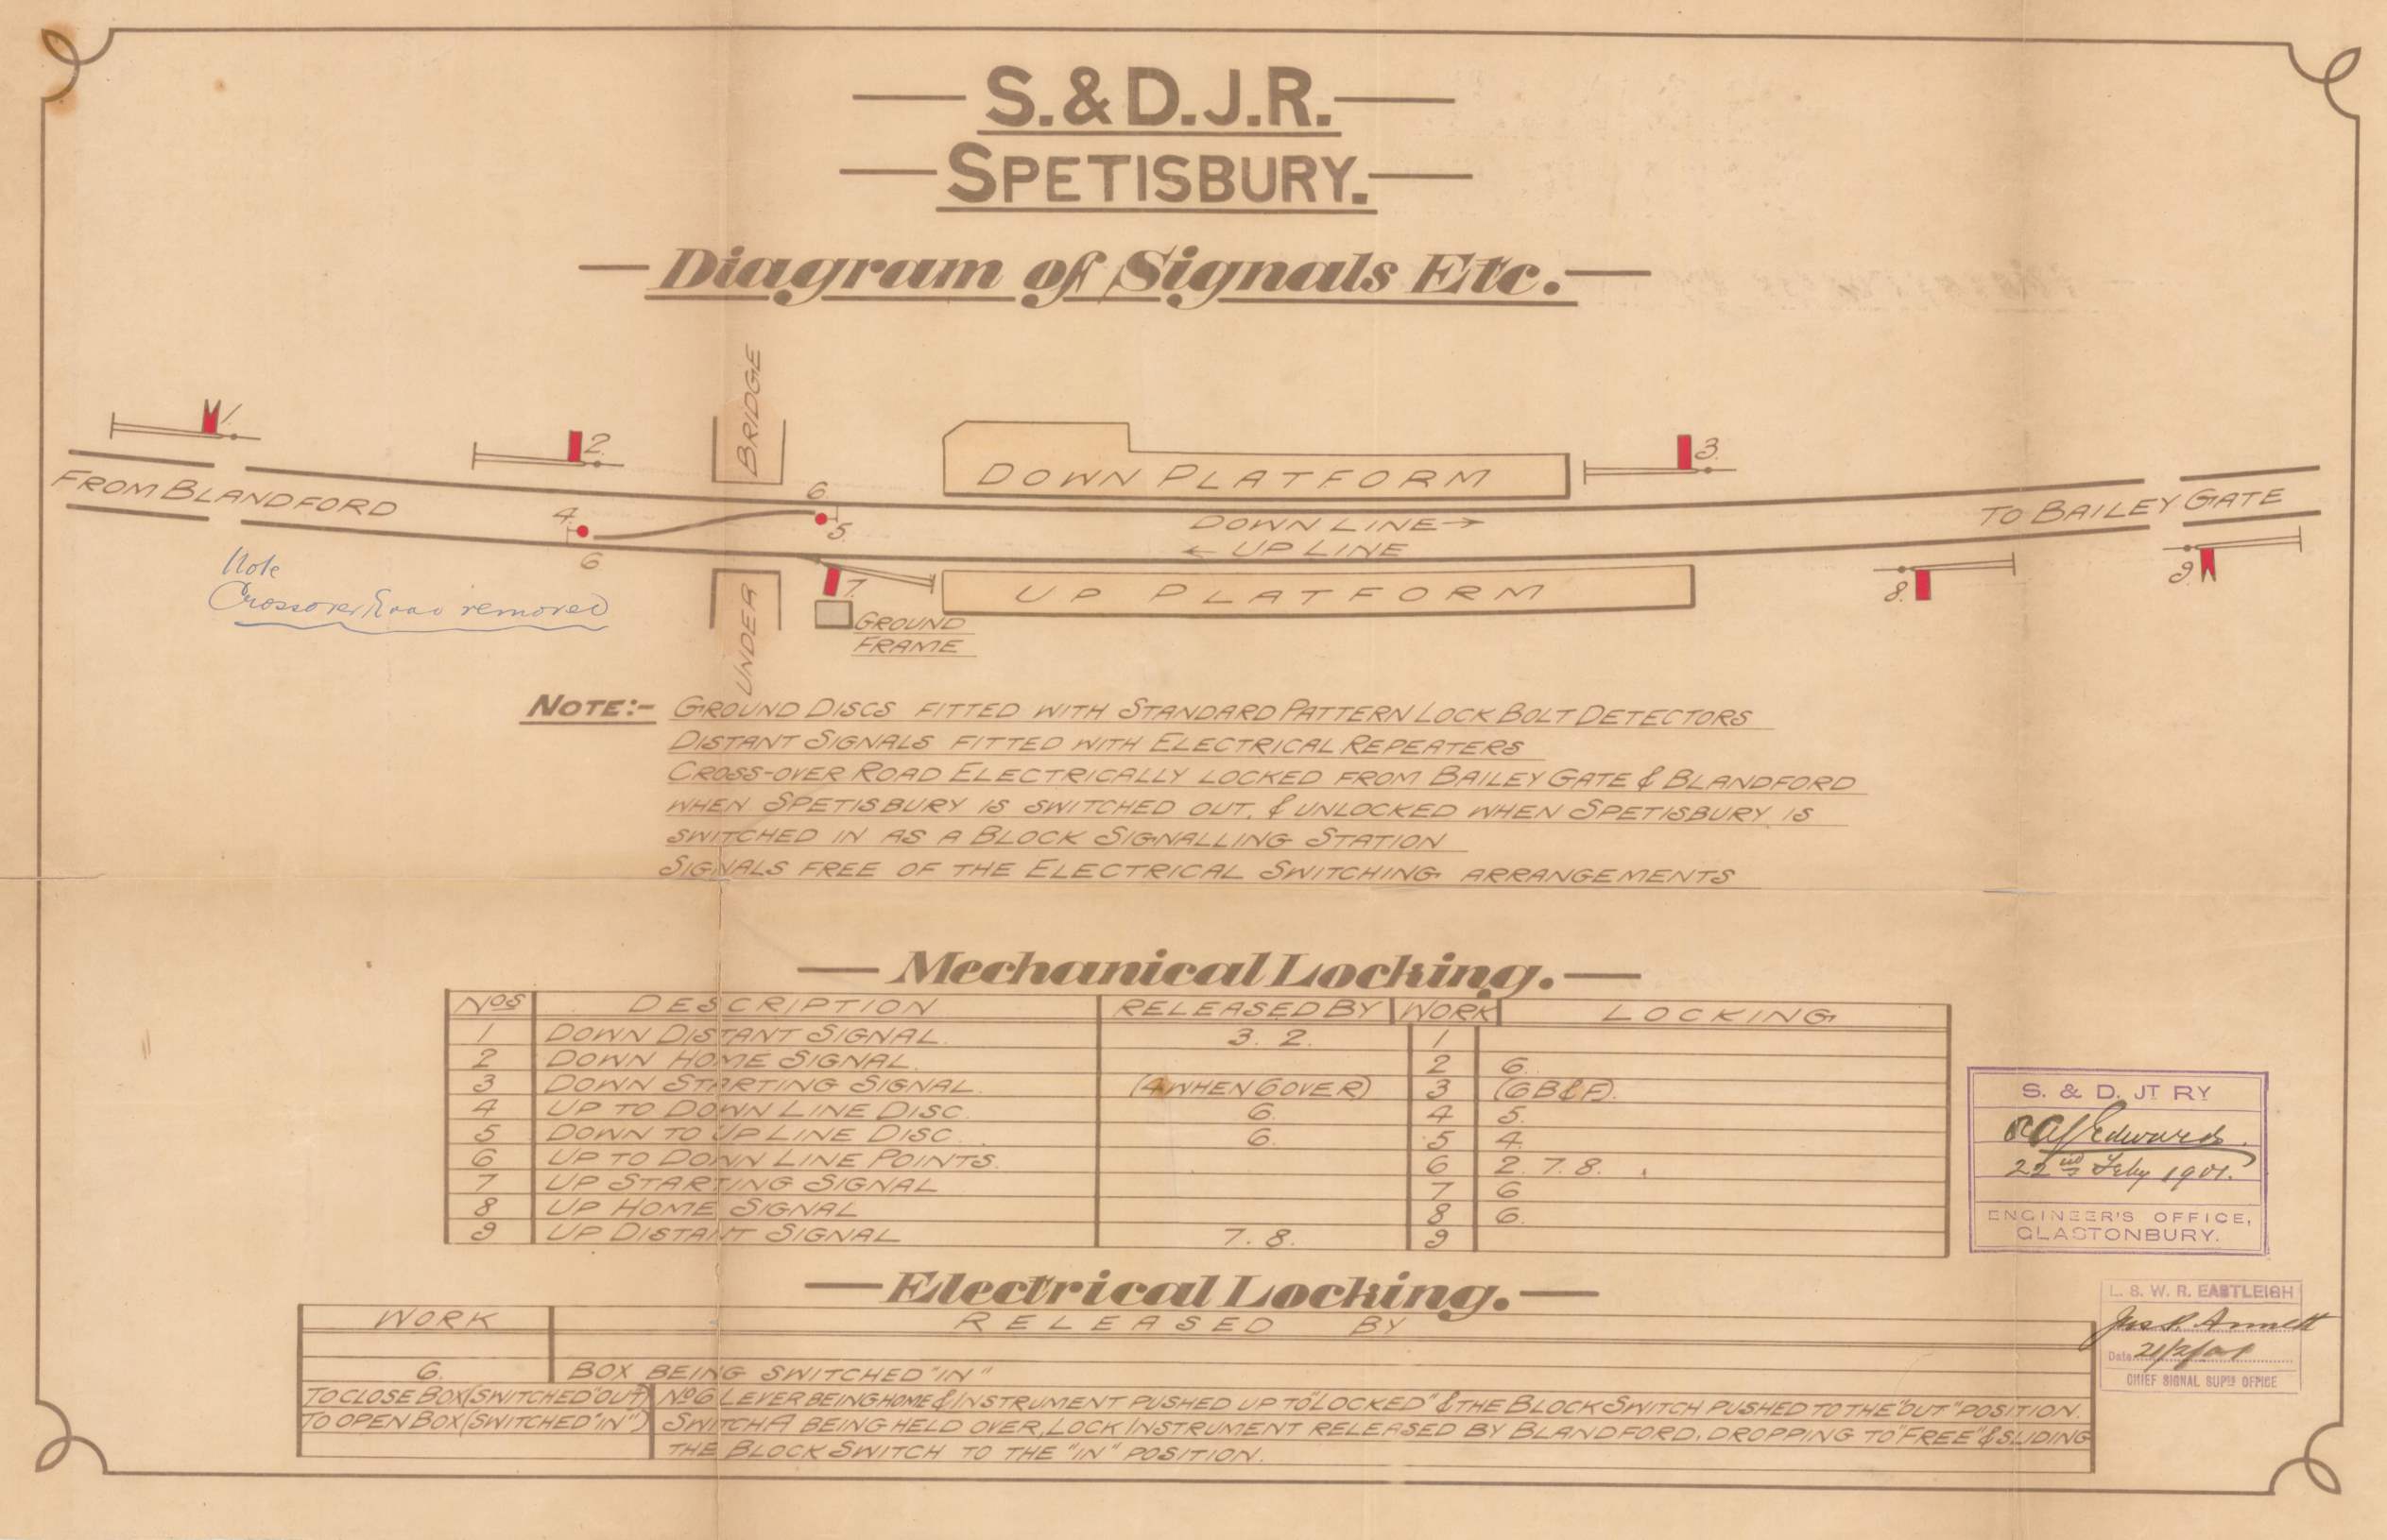 S. & D. J. R.
SPETISBURY.
Diagram of Signals Etc.
BRIDGE
1.
2.
3.
DOWN PLATFORM
FROM BLANDFORD
TO BAILEY GATE
6
4.
5.
DOWN LINE →
← UP LINE
6
Note
Crossover Road removed
7.
UP PLATFORM
8.
9.
UNDER
GROUND
FRAME
NOTE:- GROUND DISCS FITTED WITH STANDARD PATTERN LOCK BOLT DETECTORS
DISTANT SIGNALS FITTED WITH ELECTRICAL REPEATERS
CROSS-OVER ROAD ELECTRICALLY LOCKED FROM BAILEY GATE & BLANDFORD
WHEN SPETISBURY IS SWITCHED OUT, & UNLOCKED WHEN SPETISBURY IS
SWITCHED IN AS A BLOCK SIGNALLING STATION
SIGNALS FREE OF THE ELECTRICAL SWITCHING ARRANGEMENTS
Mechanical Locking.
NOS DESCRIPTION RELEASED BY WORK LOCKING
1 DOWN DISTANT SIGNAL. 3. 2. 1
2 DOWN HOME SIGNAL. 2 6.
3 DOWN STARTING SIGNAL. (4 WHEN 6 OVER) 3 (6 B & F).
4 UP TO DOWN LINE DISC. 6. 4 5.
5 DOWN TO UP LINE DISC. 6. 5 4.
6 UP TO DOWN LINE POINTS. 6 2. 7. 8.
7 UP STARTING SIGNAL 7 6
8 UP HOME SIGNAL 8 6.
9 UP DISTANT SIGNAL 7. 8. 9
S. & D. JT RY
Edwards.
22nd Feby 1901.
ENGINEER'S OFFICE,
GLASTONBURY.
Electrical Locking.
WORK RELEASED BY
6. BOX BEING SWITCHED "IN"
TO CLOSE BOX (SWITCHED "OUT") No 6 LEVER BEING HOME & INSTRUMENT PUSHED UP TO "LOCKED" & THE BLOCK SWITCH PUSHED TO THE "OUT" POSITION.
TO OPEN BOX (SWITCHED "IN") SWITCH A BEING HELD OVER, LOCK INSTRUMENT RELEASED BY BLANDFORD, DROPPING TO "FREE" & SLIDING
THE BLOCK SWITCH TO THE "IN" POSITION.
L. S. W. R. EASTLEIGH
Annett
Date 21/2/01
CHIEF SIGNAL SUPTS OFFICE